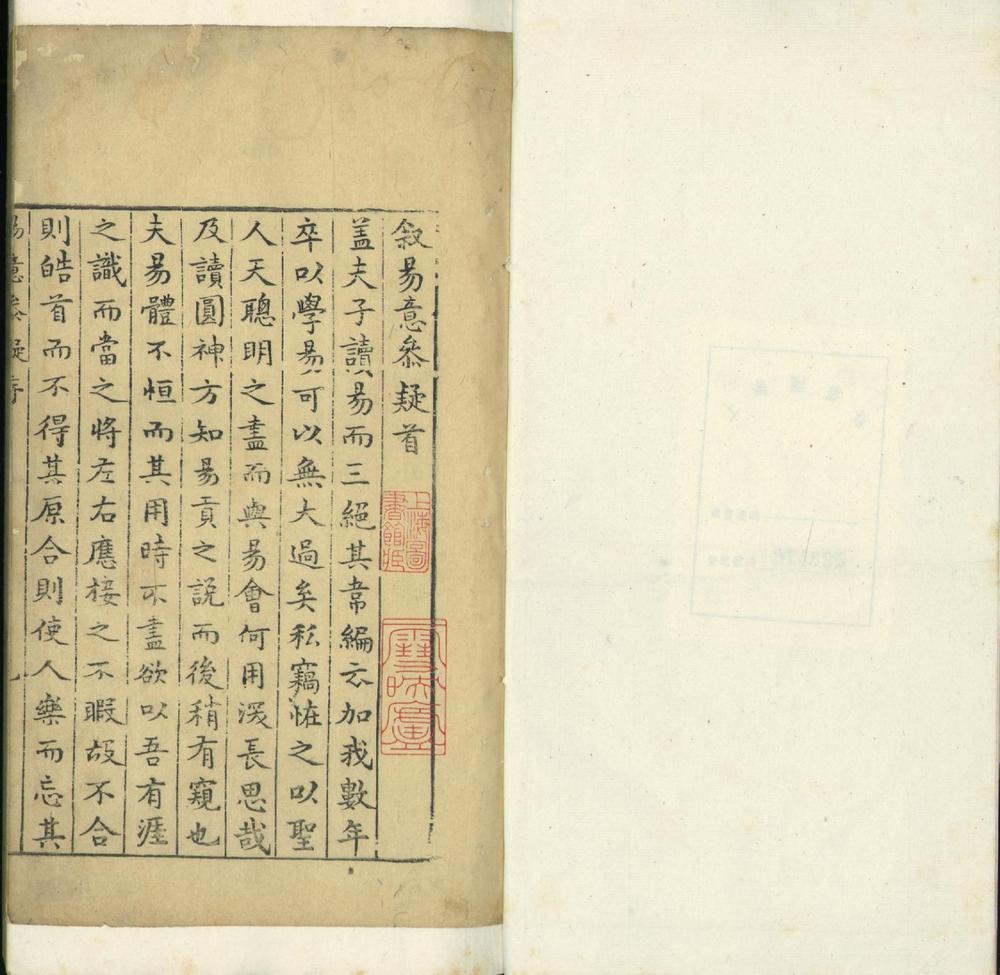 叙易意叅疑首
盖夫子讀易而三絕其韋編云加我數年
卒以學易可以無大過矣私竊怪之以聖
人天聰明之盡而與易會何用深長思哉
及讀圓神方知易貢之說而後稍有窺也
夫易體不恒而其用時不盡欲以吾有涯
之識而當之將左右應接之不暇故不合
則皓首而不得其原合則使人樂而忘其
易意叅疑序
上海圖
書館藏